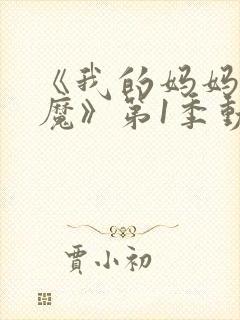 《我的妈妈
魔》第1季動
賈小初